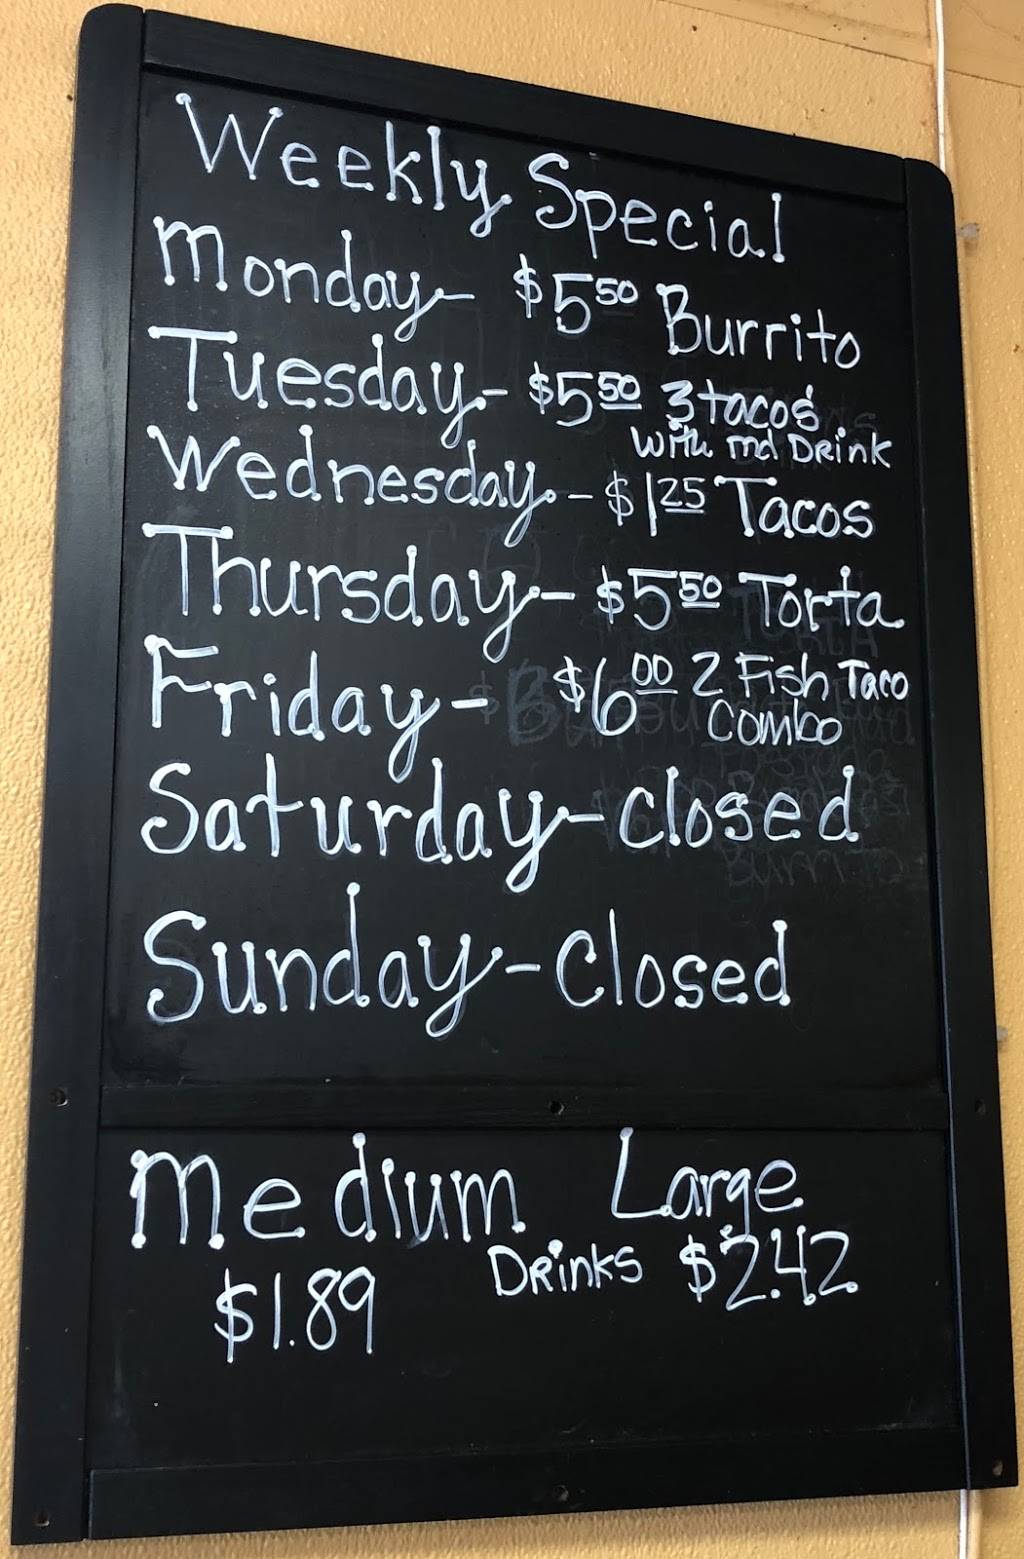 Weekly Special
Monday - $5 50 Burrito
Tuesday - $5 50 3 tacos
with md Drink
Wednesday - $1 25 Tacos
Thursday - $5 50 Torta
Friday - $6 00 2 Fish Taco
Combo
Saturday - Closed
Sunday - Closed
Medium Large
Drinks
$1.89 $2.42